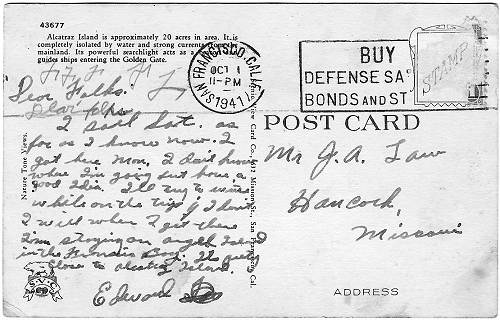 43677
Alcatraz Island is approximately 20 acres in area. It is
completely isolated by water and strong currents from the
mainland. Its powerful searchlight acts as a
guides ships entering the Golden Gate.
SAN FRANCISCO, CALIF.
OCT 1
11-PM
1941
BUY
DEFENSE SA
BONDS AND ST
STAMP
POST CARD
Dear Folks:
I sail Sat. as
far as I know now. I
got here Mon. I don't know
where I'm going but have a
good idea. I'll try to write
while on the trip if I don't
I will when I get there
I'm staying on angel Island
in the Francisco Bay. It
close to alcatraz Island.
Edward
Mr J.A. Law
Hancock,
Missouri
ADDRESS
Nature Tone Views.
View Card Co., 1612 Mission St., San Francisco, Cal.